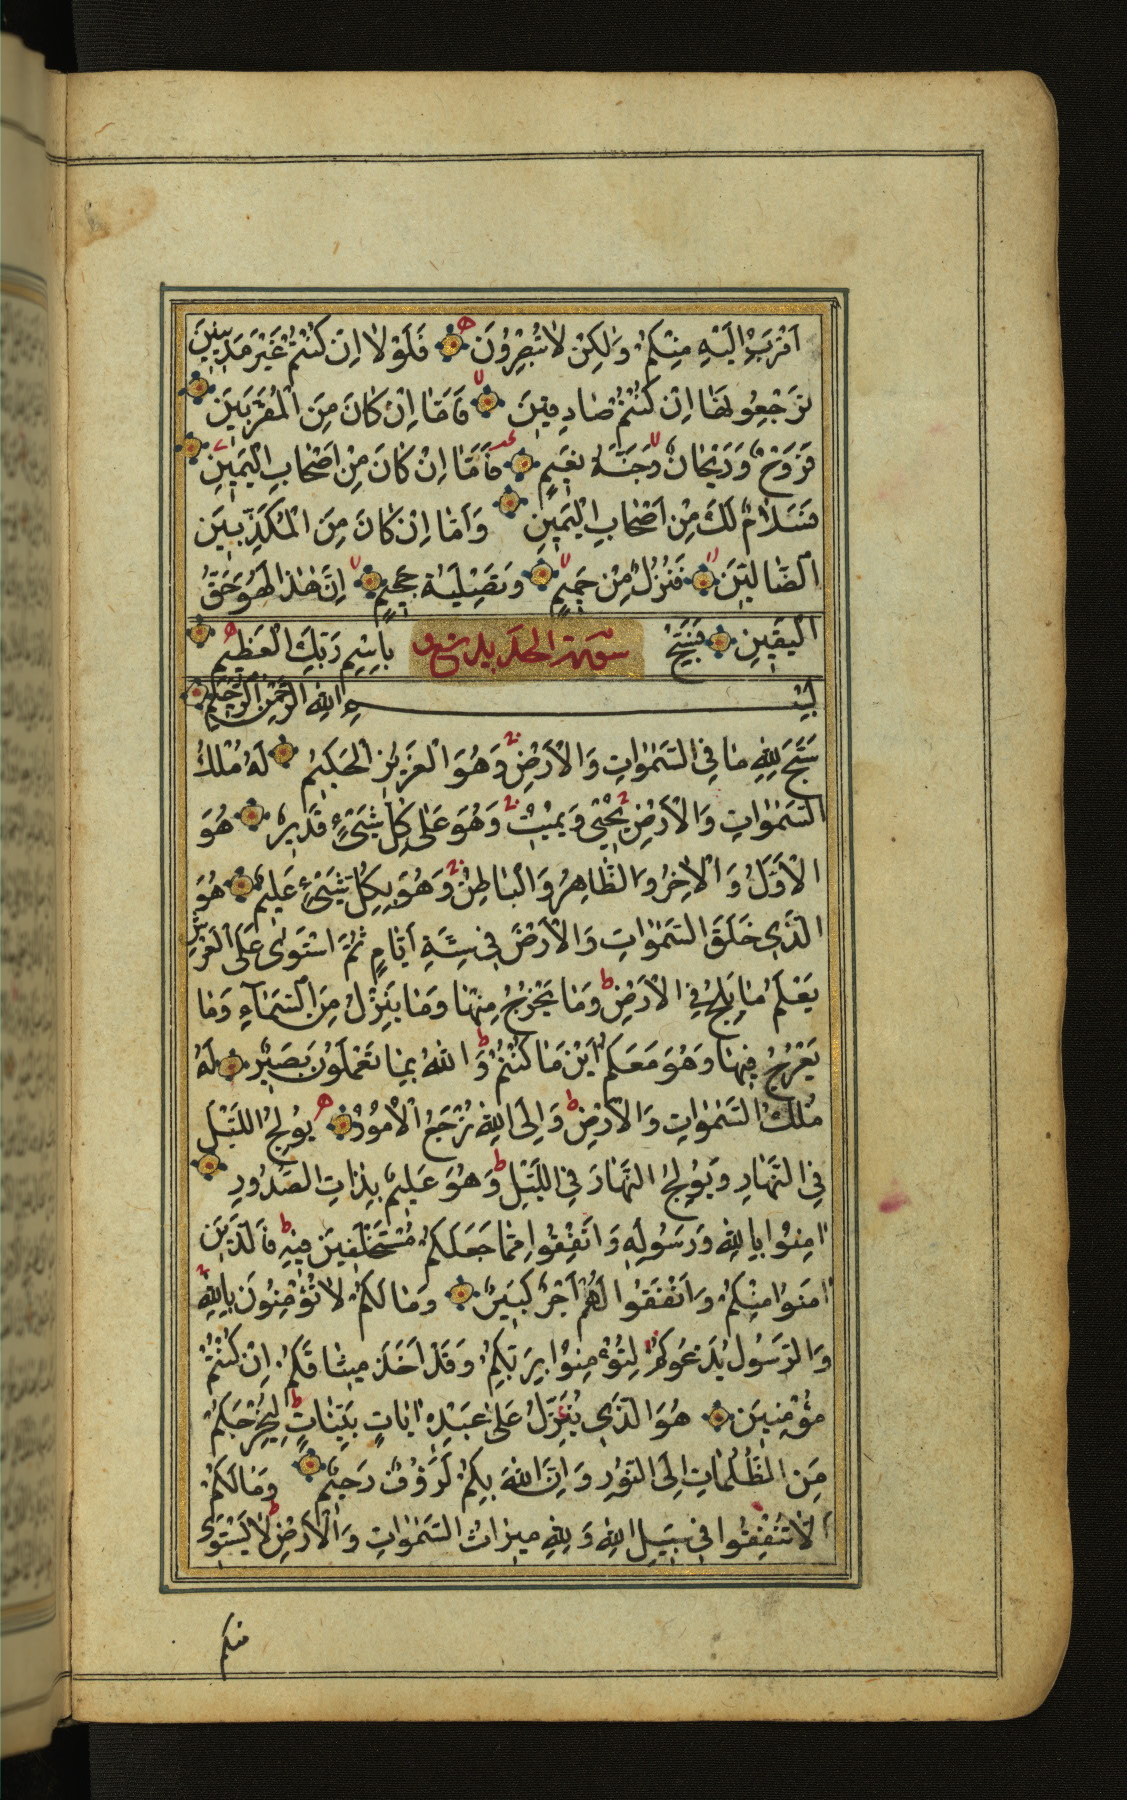 اَقْرَبُ اِلَيْهِ مِنْكُمْ وَلٰكِنْ لَا تُبْصِرُوْنَ فَلَوْلَا اِنْ كُنْتُمْ غَيْرَ مَدِيْنِيْنَ
تَرْجِعُونَهَا اِنْ كُنْتُمْ صَادِقِيْنَ فَاَمَّا اِنْ كَانَ مِنَ الْمُقَرَّبِيْنَ
فَرَوْحٌ وَرَيْحَانٌ وَجَنَّةُ نَعِيْمٍ وَاَمَّا اِنْ كَانَ مِنْ اَصْحَابِ الْيَمِيْنِ
فَسَلَامٌ لَكَ مِنْ اَصْحَابِ الْيَمِيْنِ وَاَمَّا اِنْ كَانَ مِنَ الْمُكَذِّبِيْنَ
الضَّالِّيْنَ فَنُزُلٌ مِنْ حَمِيْمٍ وَتَصْلِيَةُ جَحِيْمٍ اِنَّ هٰذَا لَهُوَ حَقُّ
الْيَقِيْنِ فَسَبِّحْ سورة الحديد بِاسْمِ رَبِّكَ الْعَظِيْمِ
بِسْمِ اللهِ الرَّحْمٰنِ الرَّحِيْمِ
سَبَّحَ لِلهِ مَا فِي السَّمٰوَاتِ وَالْاَرْضِ وَهُوَ الْعَزِيْزُ الْحَكِيْمُ لَهُ مُلْكُ
السَّمٰوَاتِ وَالْاَرْضِ يُحْيِيْ وَيُمِيْتُ وَهُوَ عَلٰى كُلِّ شَيْءٍ قَدِيْرٌ هُوَ
الْاَوَّلُ وَالْاٰخِرُ وَالظَّاهِرُ وَالْبَاطِنُ وَهُوَ بِكُلِّ شَيْءٍ عَلِيْمٌ هُوَ
الَّذِيْ خَلَقَ السَّمٰوَاتِ وَالْاَرْضَ فِيْ سِتَّةِ اَيَّامٍ ثُمَّ اسْتَوٰى عَلَى الْعَرْشِ
يَعْلَمُ مَا يَلِجُ فِي الْاَرْضِ وَمَا يَخْرُجُ مِنْهَا وَمَا يَنْزِلُ مِنَ السَّمَآءِ وَمَا
يَعْرُجُ فِيْهَا وَهُوَ مَعَكُمْ اَيْنَ مَا كُنْتُمْ وَاللهُ بِمَا تَعْمَلُوْنَ بَصِيْرٌ لَهُ
مُلْكُ السَّمٰوَاتِ وَالْاَرْضِ وَاِلَى اللهِ تُرْجَعُ الْاُمُوْرُ يُوْلِجُ اللَّيْلَ
فِي النَّهَارِ وَيُوْلِجُ النَّهَارَ فِي اللَّيْلِ وَهُوَ عَلِيْمٌ بِذَاتِ الصُّدُوْرِ
اٰمِنُوْا بِاللهِ وَرَسُوْلِهِ وَاَنْفِقُوْا مِمَّا جَعَلَكُمْ مُسْتَخْلَفِيْنَ فِيْهِ فَالَّذِيْنَ
اٰمَنُوْا مِنْكُمْ وَاَنْفَقُوْا لَهُمْ اَجْرٌ كَبِيْرٌ وَمَا لَكُمْ لَا تُؤْمِنُوْنَ بِاللهِ
وَالرَّسُوْلُ يَدْعُوْكُمْ لِتُؤْمِنُوْا بِرَبِّكُمْ وَقَدْ اَخَذَ مِيْثَاقَكُمْ اِنْ كُنْتُمْ
مُؤْمِنِيْنَ هُوَ الَّذِيْ يُنَزِّلُ عَلٰى عَبْدِهِ اٰيَاتٍ بَيِّنَاتٍ لِيُخْرِجَكُمْ
مِنَ الظُّلُمَاتِ اِلَى النُّوْرِ وَاِنَّ اللهَ بِكُمْ لَرَؤُفٌ رَحِيْمٌ وَمَا لَكُمْ
اَلَّا تُنْفِقُوْا فِيْ سَبِيْلِ اللهِ وَلِلهِ مِيْرَاثُ السَّمٰوَاتِ وَالْاَرْضِ لَا يَسْتَوِيْ
منكم